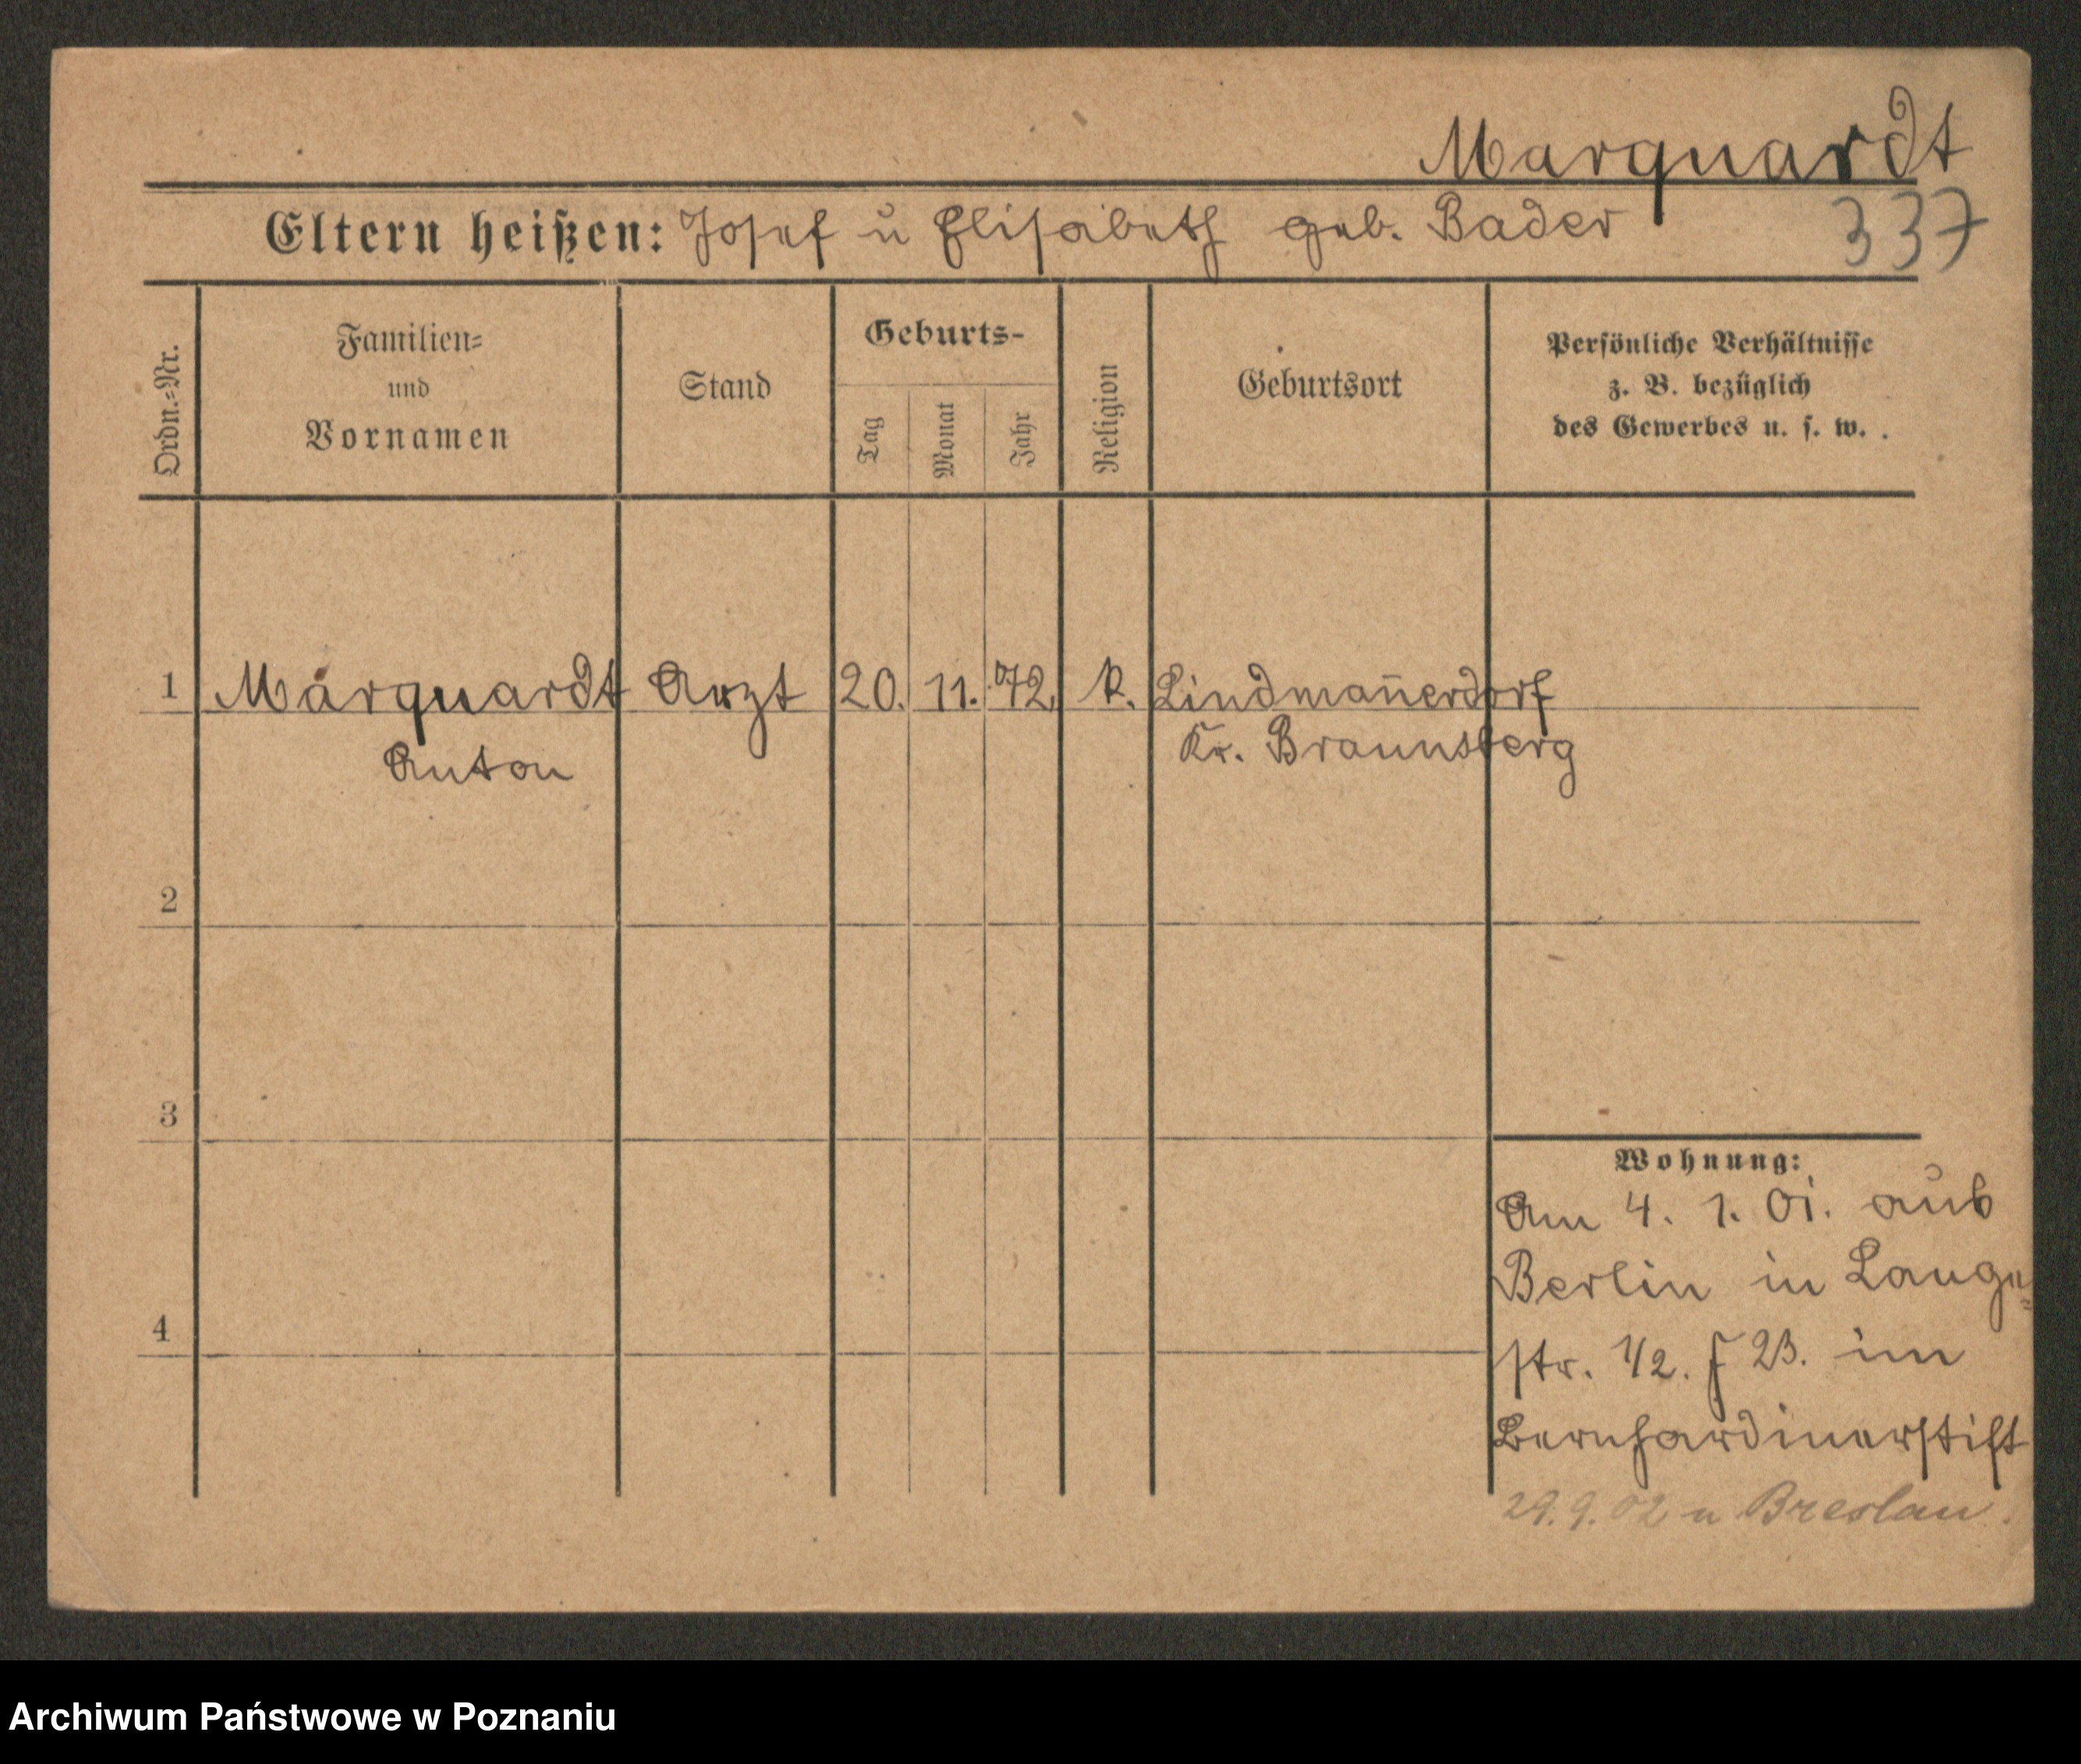 Marquardt
Eltern heißen: Josef u Elisabeth geb. Bader 337
Ordn.=Nr.
Familien=
und
Vornamen
Stand
Geburts-
Tag
Monat
Jahr
Religion
Geburtsort
Persönliche Verhältnisse
z. B. bezüglich
des Gewerbes u. s. w.
1 Marquardt Arzt 20. 11. 72. k. Lindmañerdorf
Anton Kr. Braunsberg
2
3
4
Wohnung:
Am 4. 1. 01. aus
Berlin in Lange=
str. 1/2. 23. im
Bernhardinerstift
29.9.02 n Breslau.
Archiwum Państwowe w Poznaniu